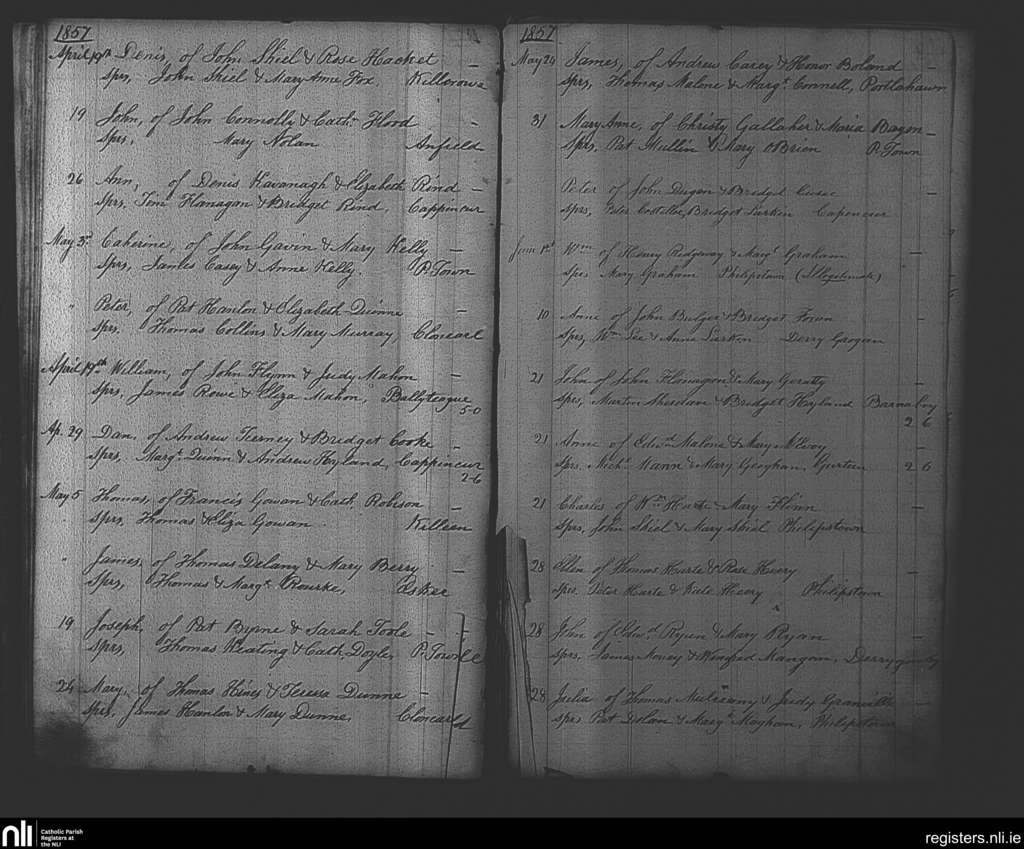 1857
April 19th Denis, of John Shiel & Rose Hacket –
Sprs, John Shiel & Mary Anne Fox, Killcrowa
19 John, of John Connolly & Cath. Flood –
Sprs, Mary Nolan Anfield
26 Ann, of Denis Kavanagh & Elizabeth Rind –
Sprs, Tim Flanagan & Bridget Rind, Cappincur
May 3rd Catherine, of John Gavin & Mary Kelly –
Sprs, James Casey & Anne Kelly. P. Town
" Peter, of Pat Hanlon & Elizabeth Dunne –
Sprs. Thomas Collins & Mary Murray, Cloncarl
April 19th William, of John Flynn & Judy Mahon –
Sprs, James Rowe & Eliza Mahon, Ballyteague
5-0
Ap. 29 Dan. of Andrew Tierney & Bridget Cooke –
Sprs, Margt. Quinn & Andrew Hyland, Cappincur
2-6
May 5 Thomas, of Francis Gowan & Cath. Robison –
Sprs, Thomas & Eliza Gowan Killeen
" James, of Thomas Delany & Mary Berry –
Sprs, Thomas & Margt. Rourke, Esker
19 Joseph, of Pat Byrne & Sarah Toole – –
Sprs, Thomas Keating & Cath. Doyle, P. Town
24 Mary, of Thomas Hines & Teresa Dunne –
Sprs, James Hanlon & Mary Dunne, Cloncarl
1857
May 24 James, of Andrew Carey & Honor Boland –
Sprs, Thomas Malone & Margt. Connell, Portlahawn
31 Mary Anne, of Christy Gallaher & Maria Bagon –
Sprs. Pat Mullin & Mary OBrien P. Town
Peter of John Dugan & Bridget –
Sprs, Peter Costelloe, Bridget Larkin Capencur
June 1st Wm of Henry Ridgway & Margt. Graham –
Sprs Mary Graham Philipstown (Illegitimate)
10 Anne of John Bulger & Bridget –
Sprs, Wm Lee & Anne Larkin Derry Grogan
21 John of John Flanagan & Mary Geratty –
Sprs, Martin Sheridan & Bridget Hyland Barnaboy
2 6
21 Anne of Edwd. Malone & Mary McEvoy –
Sprs. Michl. Mann & Mary Geoghan, Gurteen 2 6
21 Charles of Wm Harte Mary Flinn –
Sprs, John Shiel & Mary Shiel Philipstown
28 Ellen of Thomas Harte & Rose Heery –
Sprs. Peter Harte & Kate Heery Philipstown
28 John of Edwd. Ryan & Mary Ryan –
Sprs. James & Winefred Mangan,
28 Julia of Thomas & Judy –
Sprs Pat Dolan & Margt. Maghan, Philipstown
nli
Catholic Parish
Registers at
the NLI
registers.nli.ie